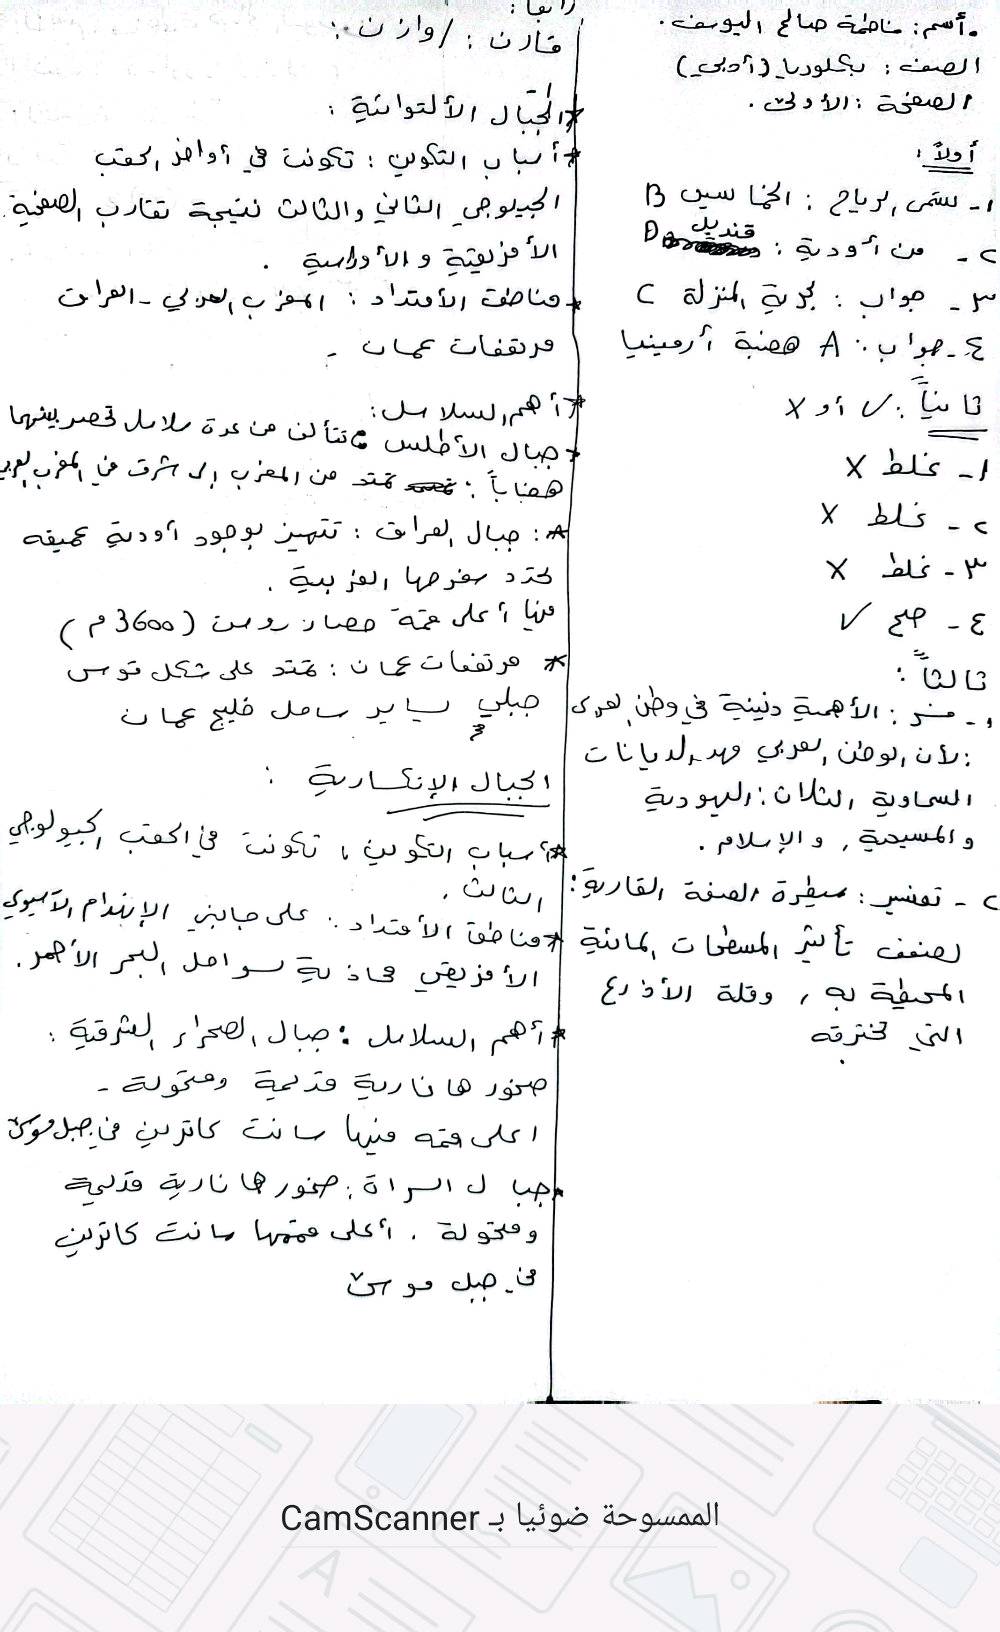 أسم: فاطمة صالح اليوسف.
الصف: بكلوريا (أدبي)
الصفحة: الأولى.
أولاً:
١- تسمى الرياح: الخماسين B
٢- من أودية: قنديل D
٣- جواب: بحرية المنزلة C
٤- جواب: A هضبة أرمينيا
ثانياً: ✓ أو X
١- غلط X
٢- غلط X
٣- غلط X
٤- صح ✓
ثالثاً:
١- فسر: الأهمية دنينة في وطن العربي
: لأن الوطن العربي مهد الديانات
السماوية الثلاث: اليهودية
والمسيحية، والإسلام.
٢- تفسير: سيطرة الصفة القارية:
لضعف تأثير المسطحات المائية
المحيطة به، وقلة الأذرع
التي تخترقه
رابعاً:
قارن: / وازن:
*الجبال الألتوائية:
*أسباب التكوين: تكونت في أواخر الحقب
الجيلوجي الثاني والثالث نتيجة تقارب الصفحية
الأفريقية والأوراسية.
*مناطق الأمتداد: المغرب العربي - العراق
مرتفعات عمان -
*أهم السلاسل:
*جبال الأطلس: تتألف من عدة سلاسل تحصر بينهما
هضاباً: تمتد من المغرب إلى شرق في المغرب العربي
*: جبال العراق: تتميز بوجود أودية عميقه
تحدد سفوحها الغربية.
فيها أعلى قمة حصار روست (3600 م)
* مرتفعات عمان: تمتد على شكل قوس
جبلي يساير ساحل خليج عمان
الجبال الإنكسارية:
*أسباب التكوين، تكونت في الحقب الجيولوجي
الثالث.
*مناطق الأمتداد: على جانبي الإنهدام الآسيوي
الأفريقي محاذية لسواحل البحر الأحمر.
*أهم السلاسل: جبال الصحراء الشرقية:
صخورها نارية قديمة ومتحولة -
اعلى قمه فيها سانت كاترين في جبل موسى
*جبال السراة: صخورها نارية قديمة
ومتحولة. أعلى قممها سانت كاترين
في جبل موسى
الممسوحة ضوئيا بـ CamScanner